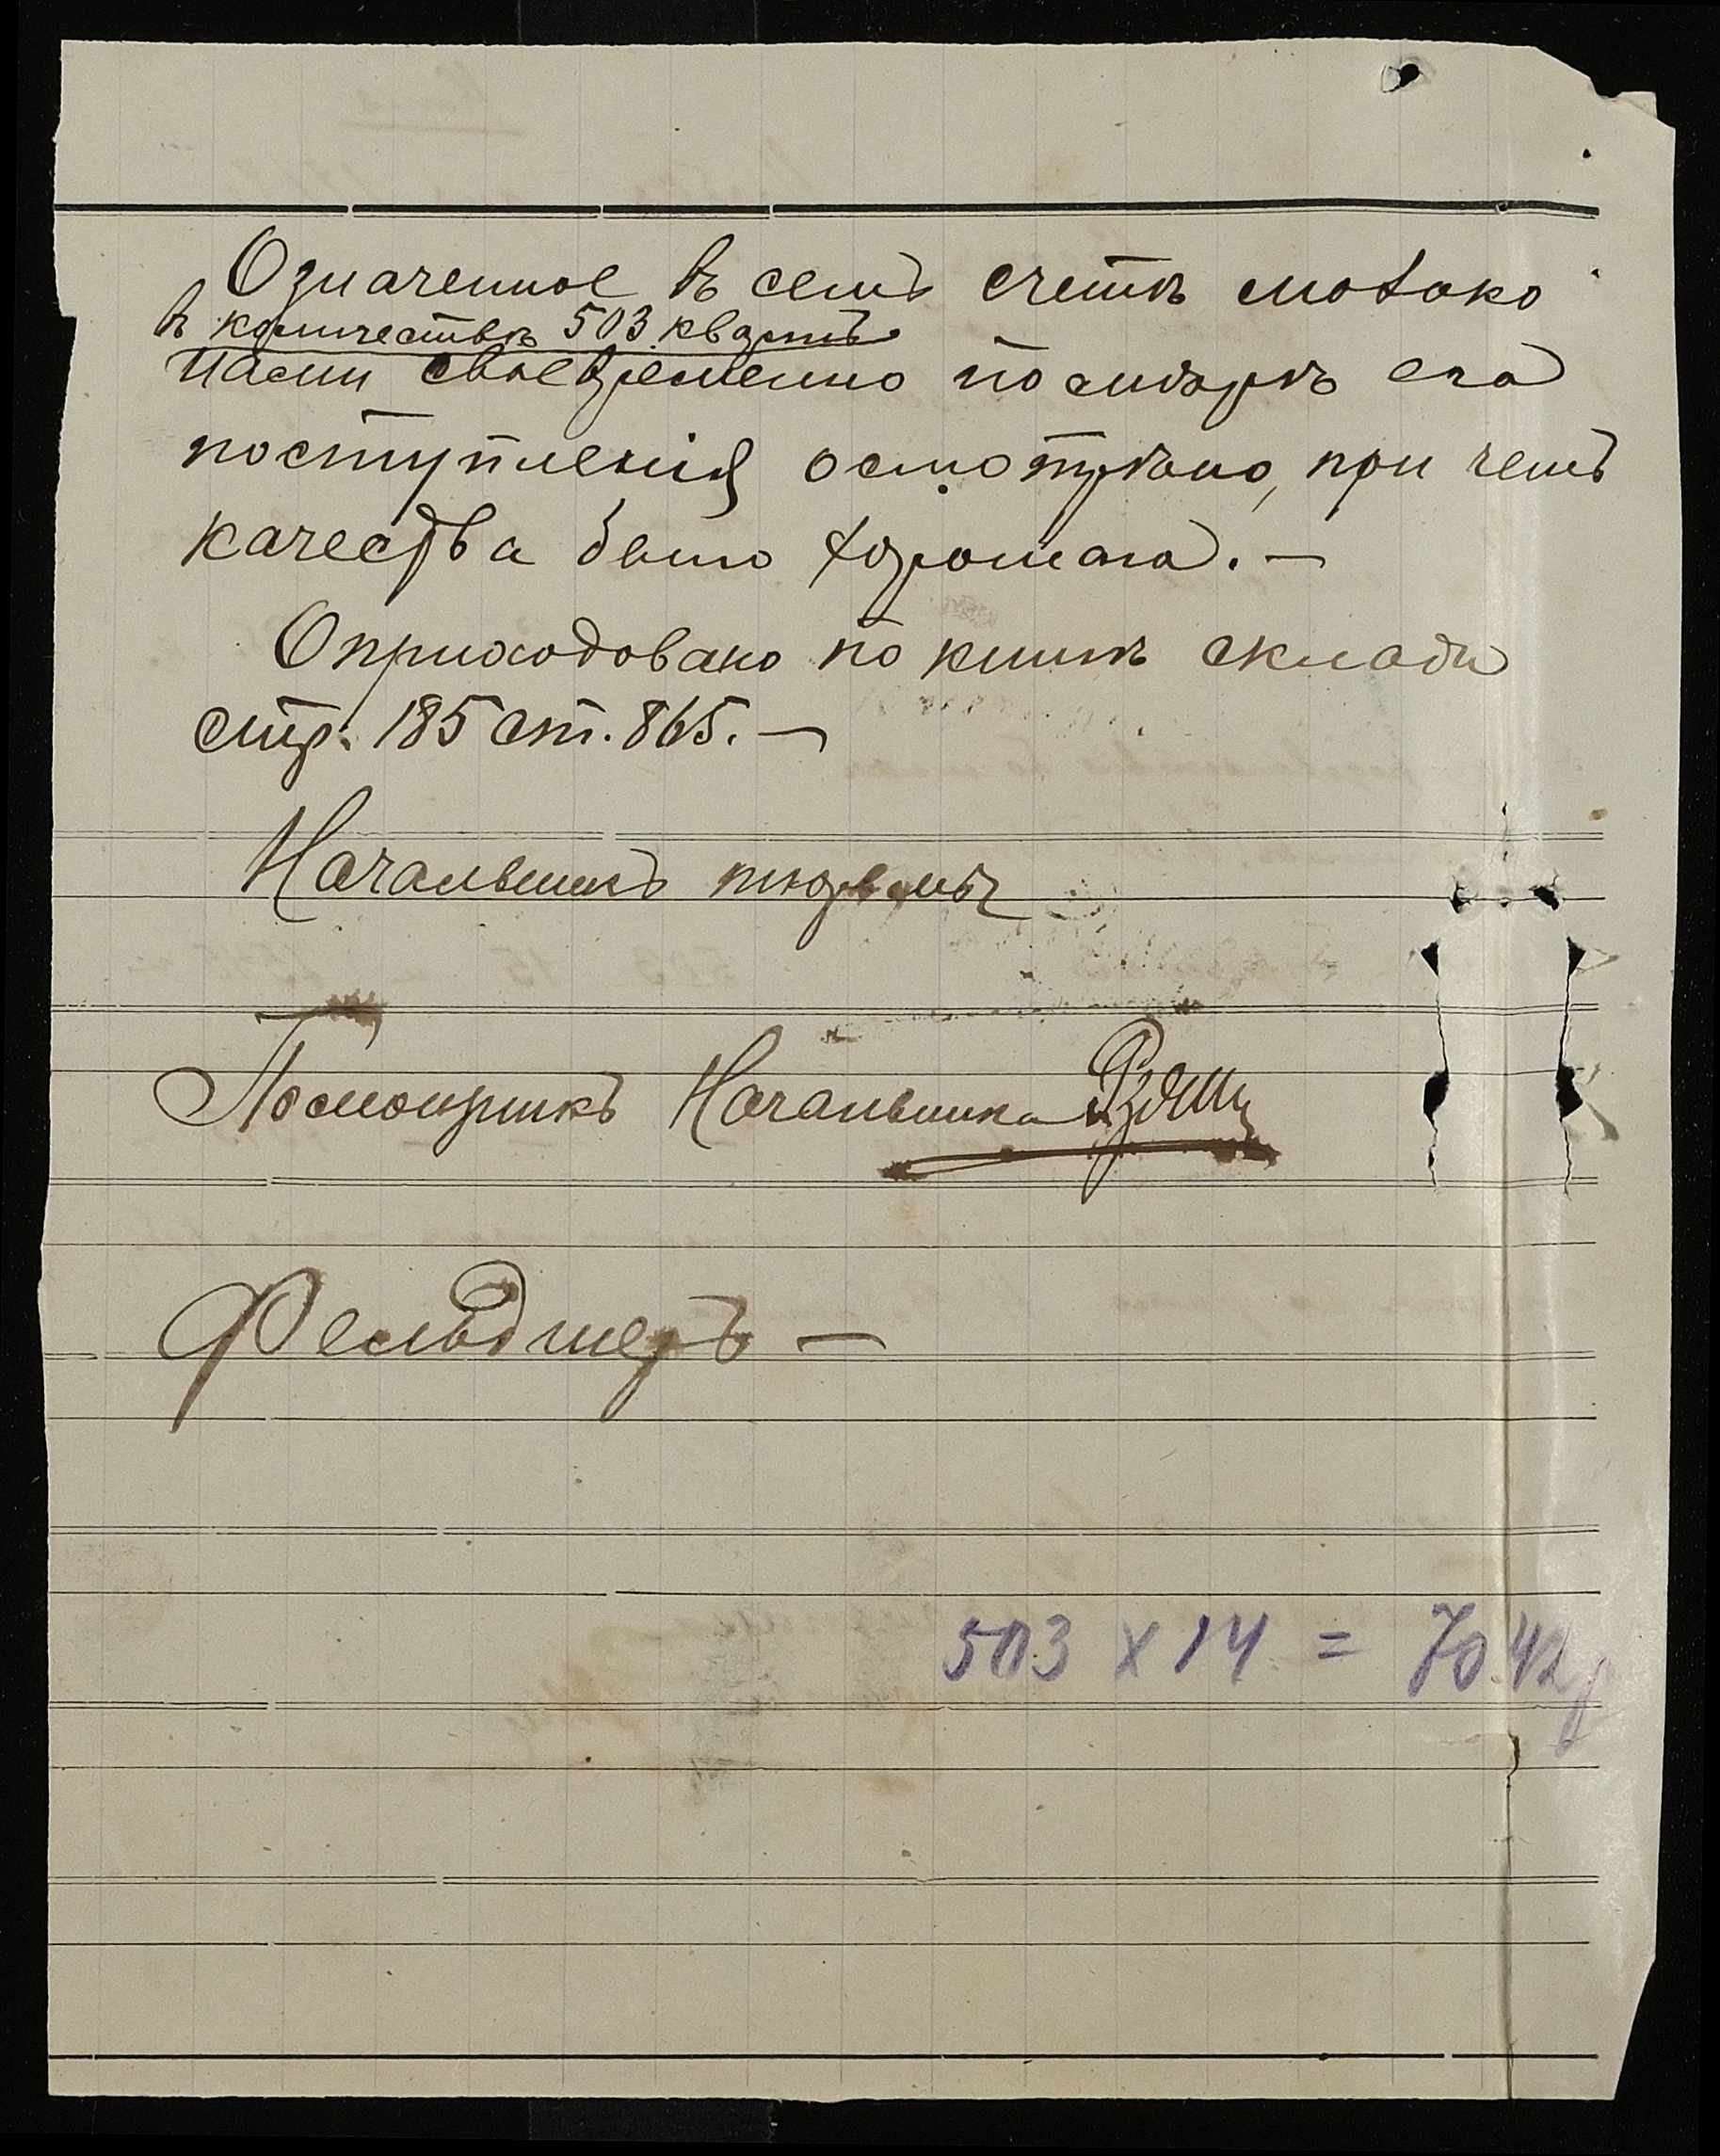 Означенное въ семъ счетѣ молоко
въ количествѣ 503 квартъ
нами своевременно по мѣрѣ его
поступленія осмотрѣно, при чемъ
качества было хорошаго. —
Оприходовано по книгѣ склада
стр. 185 ст. 865. —
Начальникъ тюрьмы
Помощникъ Начальника
Фельдшеръ —
503 x 14 = 70.42